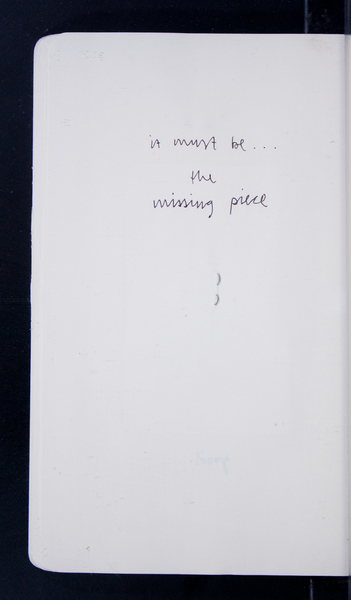 it must be...
the
missing piece